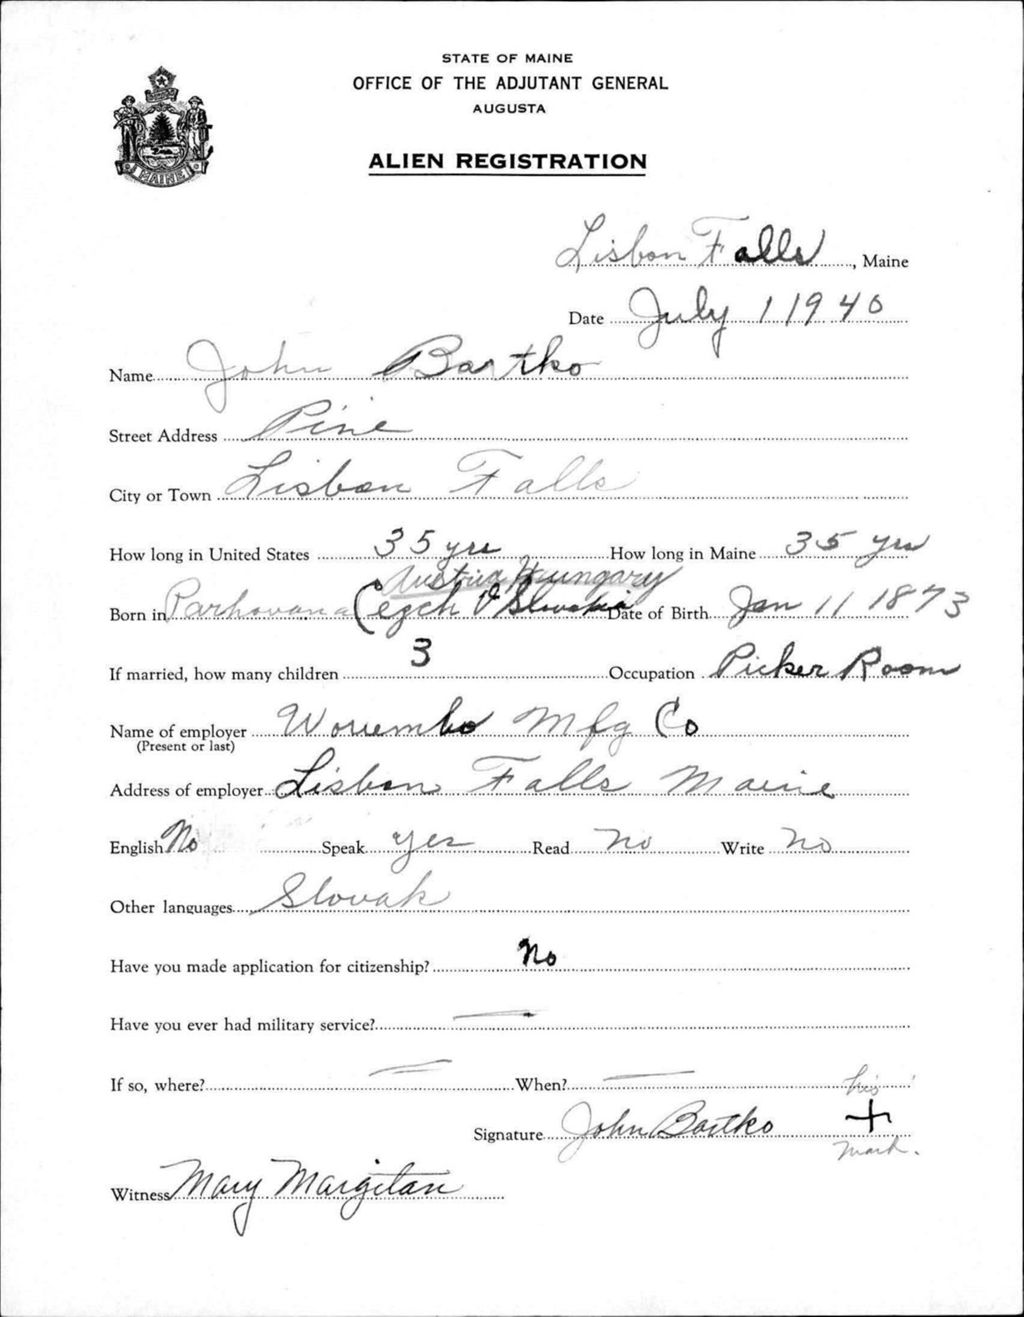 STATE OF MAINE
OFFICE OF THE ADJUTANT GENERAL
AUGUSTA
ALIEN REGISTRATION
MAINE
Lisbon Falls, Maine
Date July 1 1940
Name John Bartko
Street Address Pine
City or Town Lisbon Falls
How long in United States 35 yrs How long in Maine 35 yrs
Austria Hungary
Born in Parhovana (Czech O Slovakia Date of Birth Jan 11 1873
If married, how many children 3 Occupation Picker Room
Name of employer Worumbo Mfg Co
(Present or last)
Address of employer Lisbon Falls Maine
English No Speak yes Read No Write No
Other languages Slovak
Have you made application for citizenship? No
Have you ever had military service? —
If so, where? — When? —
his
Signature John Bartko +
mark.
Witness Mary Margitan